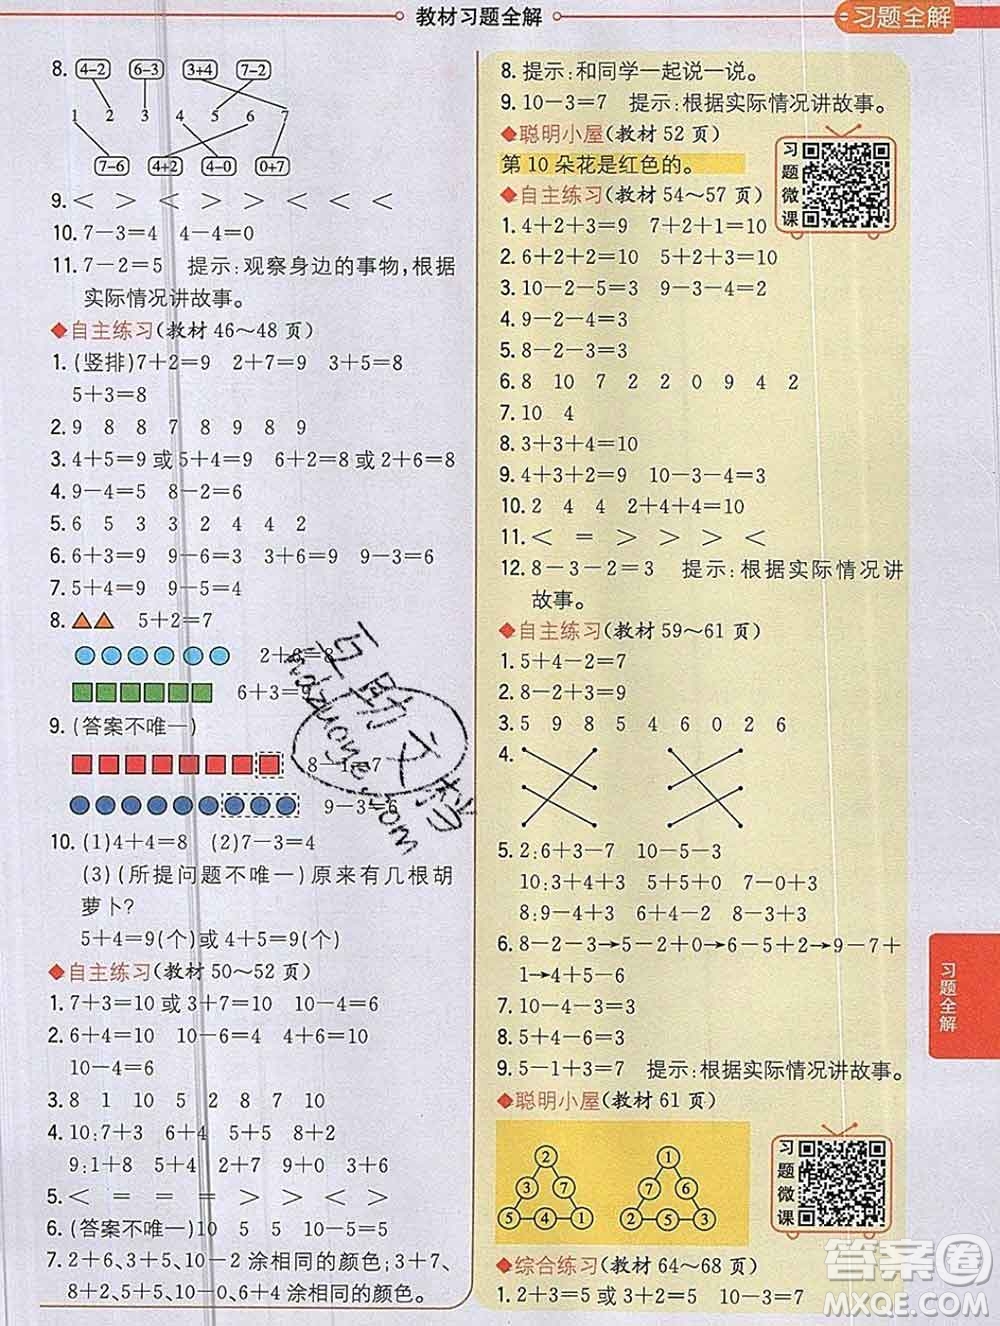 教材习题全解
习题全解
8. 4-2 6-3 3+4 7-2
1 2 3 4 5 6 7
7-6 4+2 4-0 0+7
9. < < < > > < < < <
10. 7-3=4 4-4=0
11. 7-2=5 提示:观察身边的事物,根据
实际情况讲故事。
◆自主练习(教材 46~48 页)
1. (竖排)7+2=9 2+7=9 3+5=8
5+3=8
2. 9 8 8 7 8 9 8 9
3. 4+5=9 或 5+4=9 6+2=8 或 2+6=8
4. 9-4=5 8-2=6
5. 6 5 3 3 2 4 4 2
6. 6+3=9 9-6=3 3+6=9 9-3=6
7. 5+4=9 9-5=4
8. 5+2=7
2+6=8
6+3=9
9. (答案不唯一)
8-1=7
9-3=6
10. (1)4+4=8 (2)7-3=4
(3)(所提问题不唯一)原来有几根胡
萝卜?
5+4=9(个)或 4+5=9(个)
◆自主练习(教材 50~52 页)
1. 7+3=10 或 3+7=10 10-4=6
2. 6+4=10 10-6=4 4+6=10
10-4=6
3. 8 1 10 5 2 8 7 10
4. 10:7+3 6+4 5+5 8+2
9:1+8 5+4 2+7 6+3
5. < = = = > > > >
6. (答案不唯一)10 5 5 10-5=5
7. 2+6,3+5,10-2 涂相同的颜色;3+7、
8+2,5+5,6+4 涂相同的颜色。
8. 提示:和同学一起说一说。
9. 10-3=7 提示:根据实际情况讲故事。
◆聪明小屋(教材 52 页)
第 10 朵花是红色的。
习题微课
◆自主练习(教材 54~57 页)
1. 4+2+3=9 7+2+1=10
2. 6+2+2=10 5+2+1=8
3. 10-2-5=3 7-2-1=4
4. 9-2-4=3
5. 8-3-2=3
6. 8 10 7 2 2 0 9 4 2
7. 10 4
8. 3+3+4=10
9. 4+3+2=9 10-3-4=3
10. 2 4 4 2+4+4=10
11. < = > > > <
12. 8-3-2=3 提示:根据实际情况讲
故事。
◆自主练习(教材 59~61 页)
1. 5+4-2=7
2. 8-2+3=9
3. 5 9 8 5 4 6 0 2 6
4.
5. 2:6+3-7 10-5-3
10:4+3+3 5+5+0 7-0+3
8:9-4+3 6-2+4 8-3+3
6. 8-2-3→5-2+0→6-5+2→9-7+
1→4+5-6
7. 10-4-3=3
8. 5+4-6=3
9. 5-1+3=7 提示:根据实际情况讲故事。
◆聪明小屋(教材 61 页)
2
3 7
5 4 1
1
7 5
2 3 4
习题微课
◆综合练习(教材 64~68 页)
1. 2+3=5 或 3+2=5 10-3=7
习题全解
互助文档
hdzuoye.com
答案圈
MXQE.COM